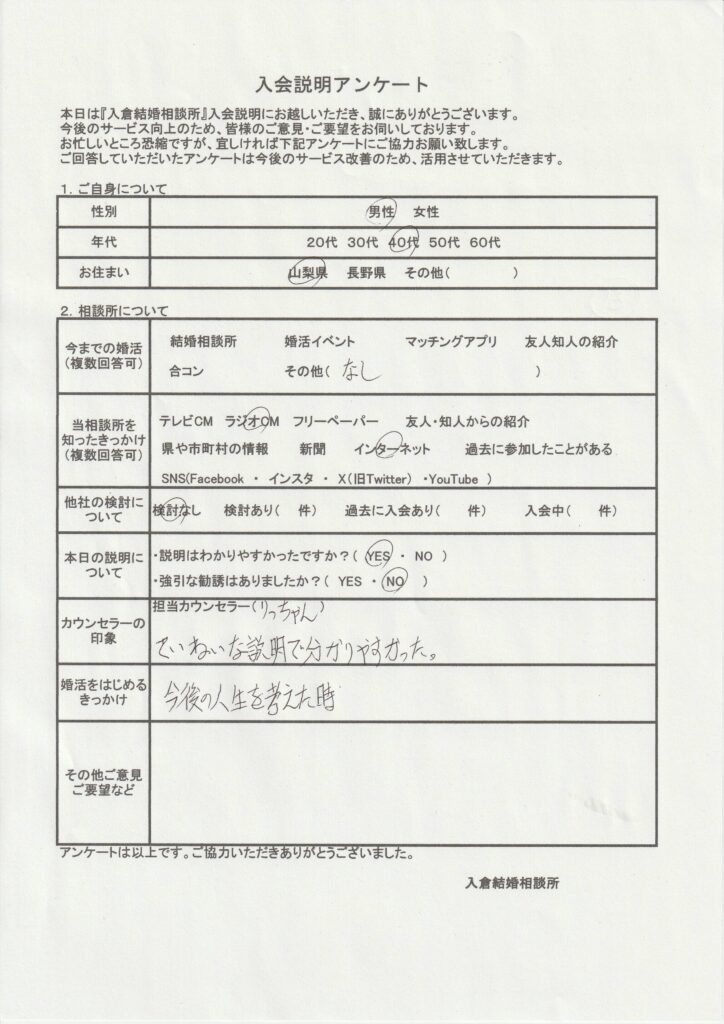 入会説明アンケート
本日は『入倉結婚相談所』入会説明にお越しいただき、誠にありがとうございます。
今後のサービス向上のため、皆様のご意見・ご要望をお伺いしております。
お忙しいところ恐縮ですが、宜しければ下記アンケートにご協力お願い致します。
ご回答していただいたアンケートは今後のサービス改善のため、活用させていただきます。
1. ご自身について
性別 男性 女性
年代 20代 30代 40代 50代 60代
お住まい 山梨県 長野県 その他( )
2. 相談所について
今までの婚活
(複数回答可)
結婚相談所 婚活イベント マッチングアプリ 友人知人の紹介
合コン その他( なし )
当相談所を
知ったきっかけ
(複数回答可)
テレビCM ラジオCM フリーペーパー 友人・知人からの紹介
県や市町村の情報 新聞 インターネット 過去に参加したことがある
SNS(Facebook ・ インスタ ・ X(旧Twitter) ・YouTube )
他社の検討に
ついて
検討なし 検討あり( 件) 過去に入会あり( 件) 入会中( 件)
本日の説明に
ついて
・説明はわかりやすかったですか?( YES ・ NO )
・強引な勧誘はありましたか?( YES ・ NO )
カウンセラーの
印象
担当カウンセラー(りっちゃん)
ていねいな説明で分かりやすかった。
婚活をはじめる
きっかけ
今後の人生を考えた時
その他ご意見
ご要望など
アンケートは以上です。ご協力いただきありがとうございました。
入倉結婚相談所